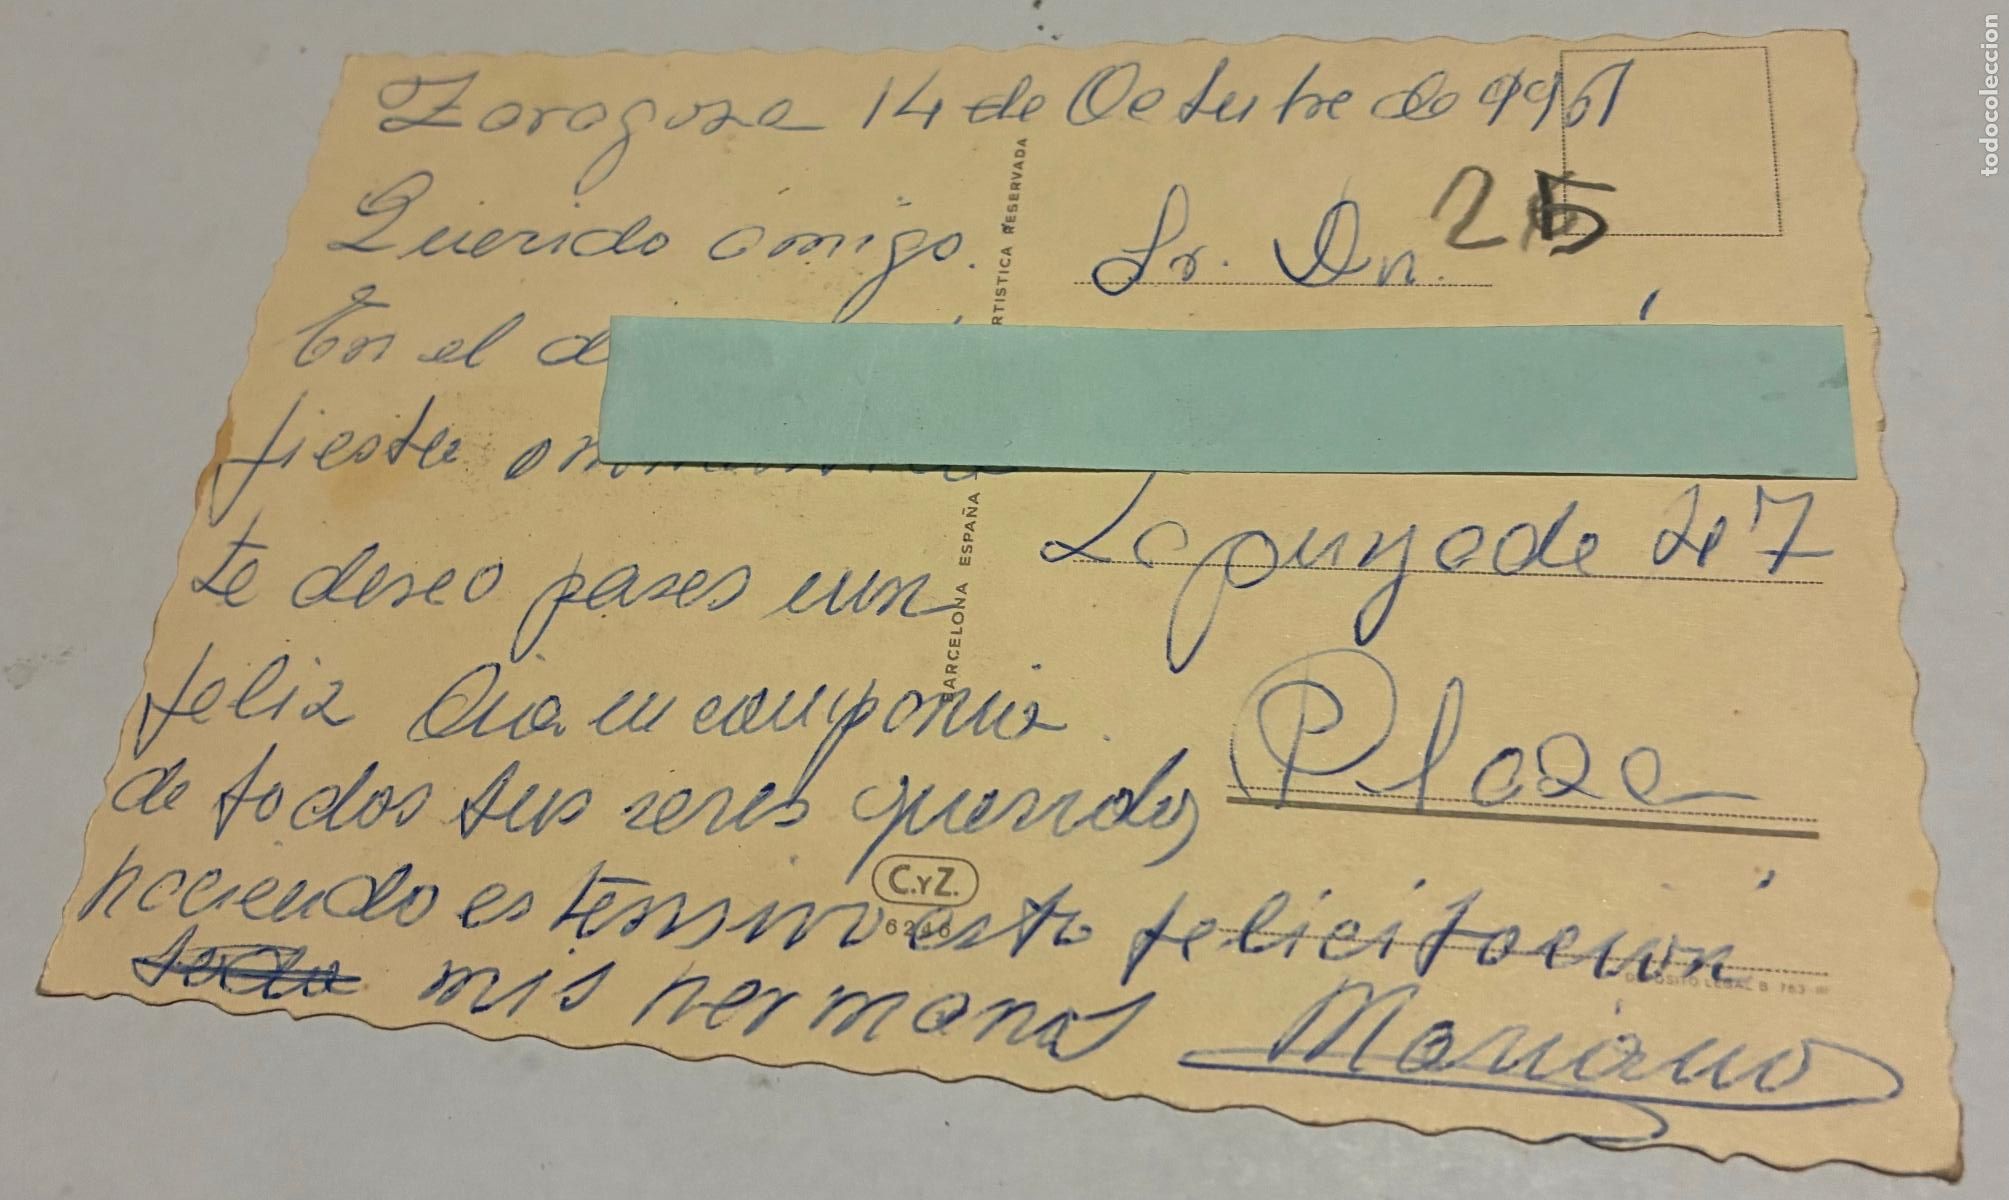 Zaragoza 14 de Octubre de 1961
Querido amigo.
En el d
fiesta onomastica
te deseo pases un
feliz dia en compania
de todos tus seres queridos
haciendo estensivo esta felicitacion
mis hermanas Mariano
25
Sr. Dn.
Lapuyade 27
Plaza
RTISTICA RESERVADA
BARCELONA ESPAÑA
C.YZ.
6246
DEPOSITO LEGAL B 763-III
todocoleccion